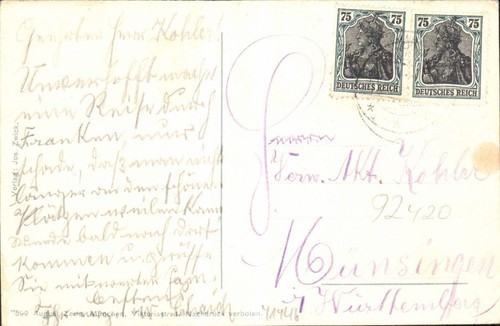 Geehrter Herr Kohler!
Unverhofft mache
eine Reise durch
Franken, nur
schade, daß man nicht
länger an den schönen
Plätzen weilen kann
werde bald nach dort
kommen u. grüße
Sie mit
besten
Verlag: Jos. Zwick,
75 75
DEUTSCHES REICH
75 75
DEUTSCHES REICH
P.
Herrn
Verw. Akt. Kohler
92420
Münsingen
Württemberg
München, Viktoriastr. Nachdruck verboten.